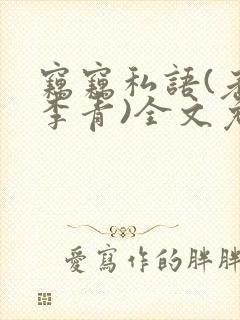 竊竊私語(
李青)全文
愛寫作的胖胖